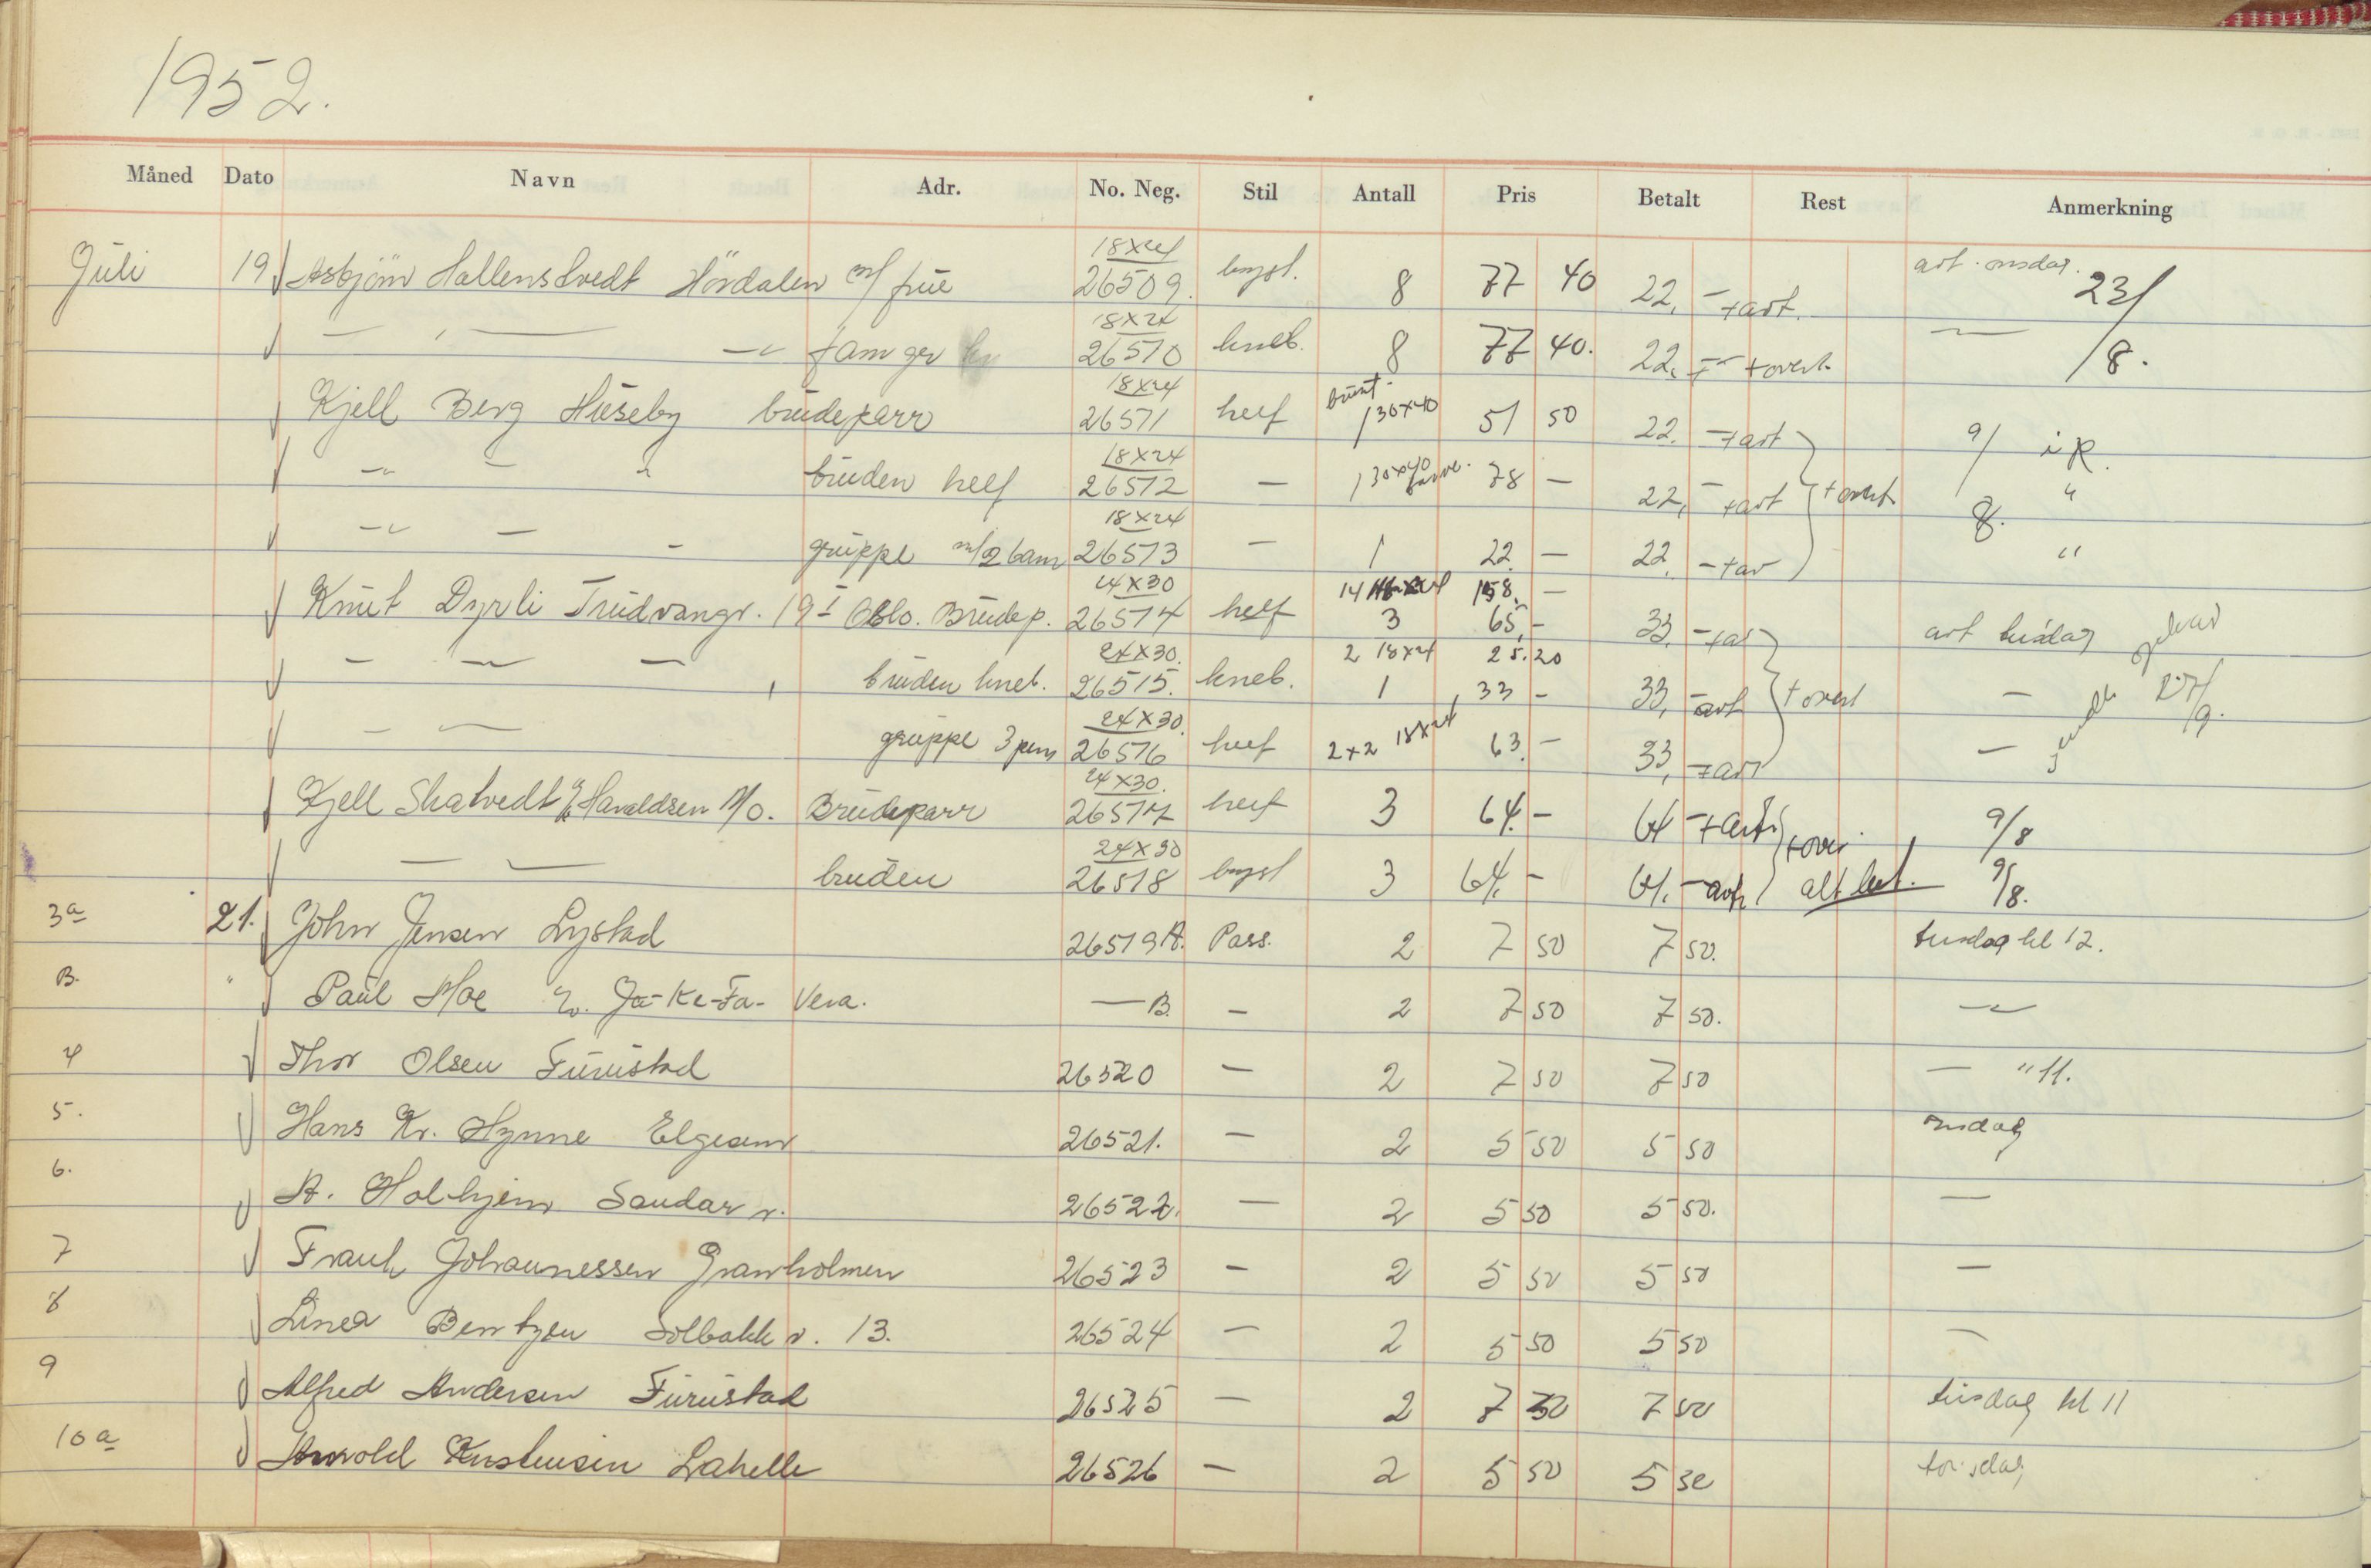 1952.
Måned Dato Navn Adr. No. Neg. Stil Antall Pris Betalt Rest Anmerkning
18x24
Juli 19 Asbjörn Hallenstvedt Hövdalen m/ frue 26509. byst. 8 77 40 22, - + avt. avt. onsdag. 23/
18x24
— " — — " fam gr 26510 kneb. 8 77 40. 22, - + overt. — /8.
18x24
Kjell Berg Huseby brudeparr 26511 helf brunt 1 30x40 51 50 22. - + avt 9/ i R.
18x24
— " — " bruden helf 26512 — 1 30x40 farve. 78 — 22, - + avt + overt. 8. "
18x24
— " — — gruppe m/2 barn 26513 — 1 22 — 22, - + av "
24x30 14 18x24 158. —
Knut Dyrli Trudvangv. 19 I Oslo. Brudep. 26514 helf 3 65,- 33, - + av avt tirsdag
24x30. 2 18x24 25.20
— — — bruden kneb. 26515. kneb. 1 33 - 33, - avt + overt — 27/9.
24x30.
— — gruppe 3 pers 26516 helf 2+2 18x24 63. — 33, - + avt —
24x30.
Kjell Skatvedt % Haraldsen N/O. Brudeparr 26517 helf 3 64. - 64 - + avt. + over 9/8
24x30
— — bruden 26518 byst 3 64. - 64. - avt alt bet. 9/8.
3a 21. John Jensen Lystad 26519 A. Pass. 2 7 50 7 50. tirsdag kl 12.
B. " Paul Moe Ja-Ke-Fa- Vera. — B. — 2 7 50 7 50. — " —
4 Thor Olsen Furustad 26520 — 2 7 50 7 50 — " 11.
5. Hans Kr. Hynne Elgesem 26521. — 2 5 50 5 50 onsdag
6. A. Holhjem Sandar v. 26522. — 2 5 50 5 50. —
7 Frank Johannessen Granholmen 26523 — 2 5 50 5 50 —
8 Linea Bentzen Solbakk v. 13. 26524 — 2 5 50 5 50 —
9 Alfred Andersen Furustad 26525 — 2 7 50 7 50 tirsdag kl 11
10a Arnold Kristensen Lahelle 26526 — 2 5 50 5 50 torsdag